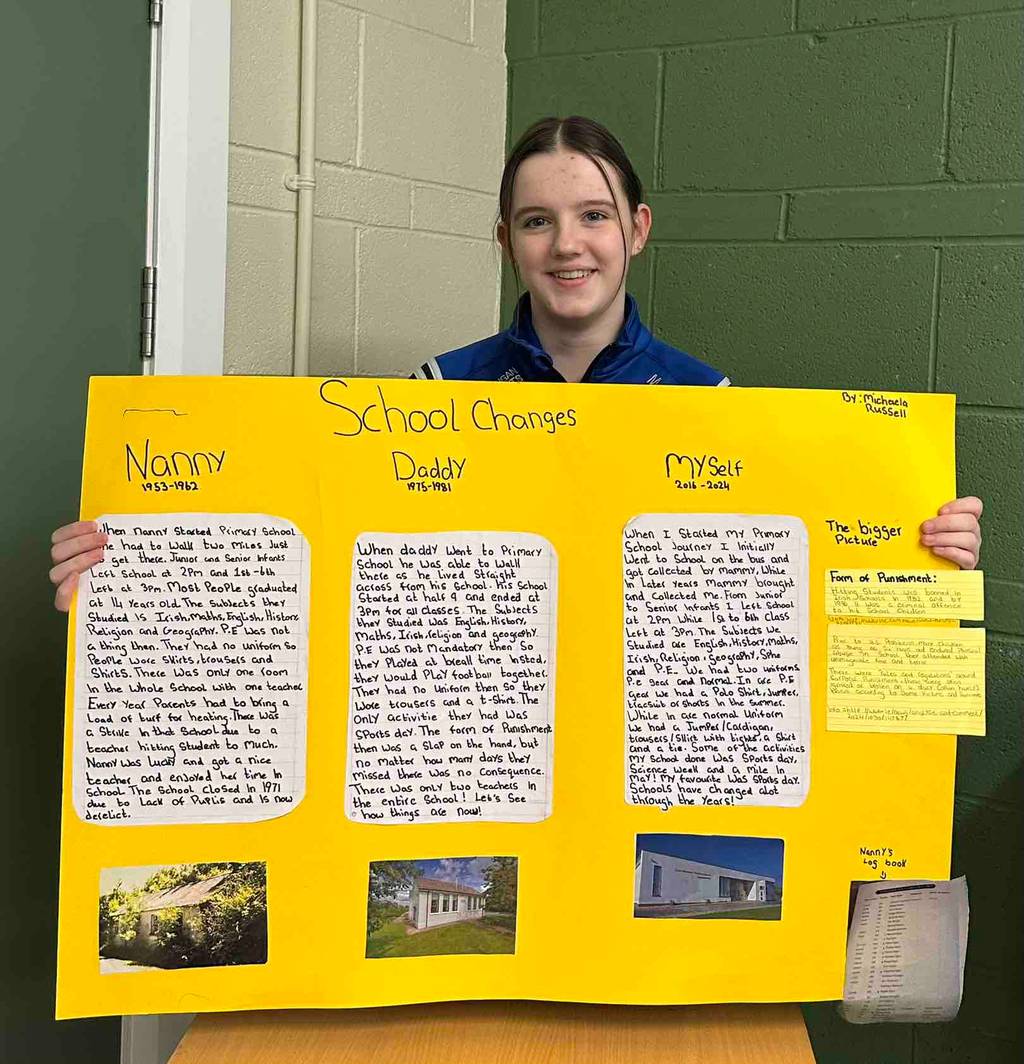 School Changes
By: Michaela
Russell
Nanny
1953-1962
When Nanny Started Primary School
he had to walk two miles Just
get there. Junior and Senior Infants
Left School at 2pm and 1st-6th
Left at 3pm. Most People graduated
at 14 years old. The Subjects they
Studied Is Irish, Maths, English, History
Religion and Geography. P.E Was not
a thing then. They had no uniform so
People wore Skirts, trousers and
Shirts. There was only one room
In the Whole School with one teacher
Every Year Parents had to bring a
Load of turf for heating. There was
a Strike In that School due to a
teacher hitting Student to Much.
Nanny was Lucky and got a nice
teacher and enjoyed her time In
School. The School closed In 1971
due to Lack of Puplis and Is now
derelict.
Daddy
1975-1981
When daddy Went to Primary
School he was able to Walk
there as he lived Straight
across from his School. His School
Started at half 9 and ended at
3pm for all classes. The Subjects
they Studied was English, History,
Maths, Irish, religion and geography.
P.E Was not Mandatory then So
they Played at break time Insted,
they would Play football together.
They had no Uniform then so they
Wore trousers and a t-Shirt. The
Only activitie they had Was
Sports day. The form of Punishment
then was a Slap on the hand, but
no matter how many days they
missed there was no Consequence.
There was only two teachers In
the entire School! Let's See
how things are now!
Myself
2016-2024
When I Started my Primary
School Journey I Initially
Went to School on the bus and
got collected by mammy, While
In later Years Mammy brought
and Collected me. From Junior
to Senior Infants I Left School
at 2pm While 1st to 6th Class
Left at 3pm. The Subjects We
Studied are English, History, Maths,
Irish, Religion, Geography, Sphe
and P.E. We had two uniforms
P.E Gear and Normal. In are P.E
gear We had a Polo Shirt, Jumper,
tracsuit or Shorts In the Summer.
While In are normal Uniform
We had a Jumper/Cardigan,
trousers/Skirt With tights, a Shirt
and a tie. Some of the activities
My School done Was Sports day,
Science Week and a Mile In
May! My favourite Was Sports day.
Schools have changed alot
through the Years!
The bigger
Picture
Form of Punishment:
Hitting Students was banned in
Irish Schools In 1982 and by
1996 It was a criminal offence
to hit School Children
Nanny's
Log book